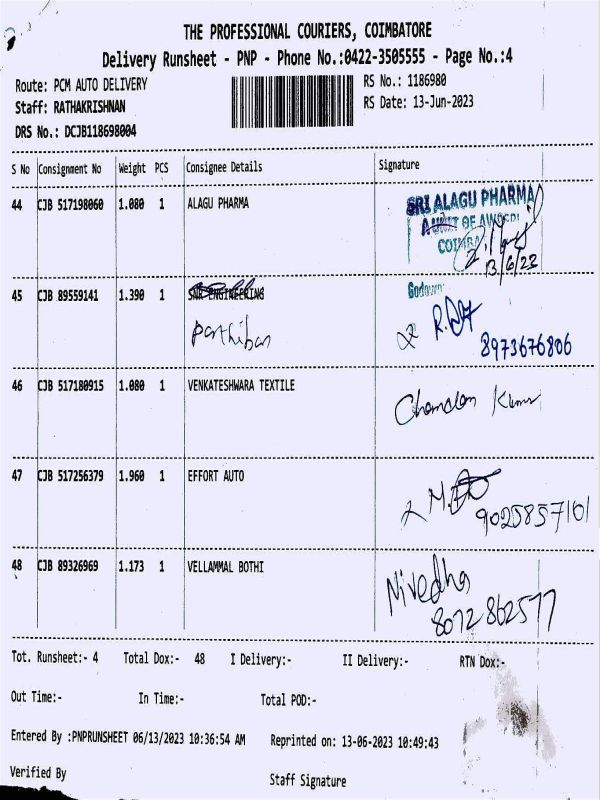 THE PROFESSIONAL COURIERS, COIMBATORE
Delivery Runsheet - PNP - Phone No.:0422-3505555 - Page No.:4
Route: PCM AUTO DELIVERY RS No.: 1186980
Staff: RATHAKRISHNAN RS Date: 13-Jun-2023
DRS No.: DCJB118698004
S No Consignment No Weight PCS Consignee Details Signature
44 CJB 517198060 1.080 1 ALAGU PHARMA SRI ALAGU PHARMA
13/6/23
45 CJB 89559141 1.390 1 SNR ENGINEERING Godown
Parthiban
8973676806
46 CJB 517180915 1.080 1 VENKATESHWARA TEXTILE
Chandan Kumar
47 CJB 517256379 1.960 1 EFFORT AUTO
9025857101
48 CJB 89326969 1.173 1 VELLAMMAL BOTHI Nivedha
8072862577
Tot. Runsheet:- 4 Total Dox:- 48 I Delivery:- II Delivery:- RTN Dox:-
Out Time:- In Time:- Total POD:-
Entered By :PNPRUNSHEET 06/13/2023 10:36:54 AM Reprinted on: 13-06-2023 10:49:43
Verified By Staff Signature